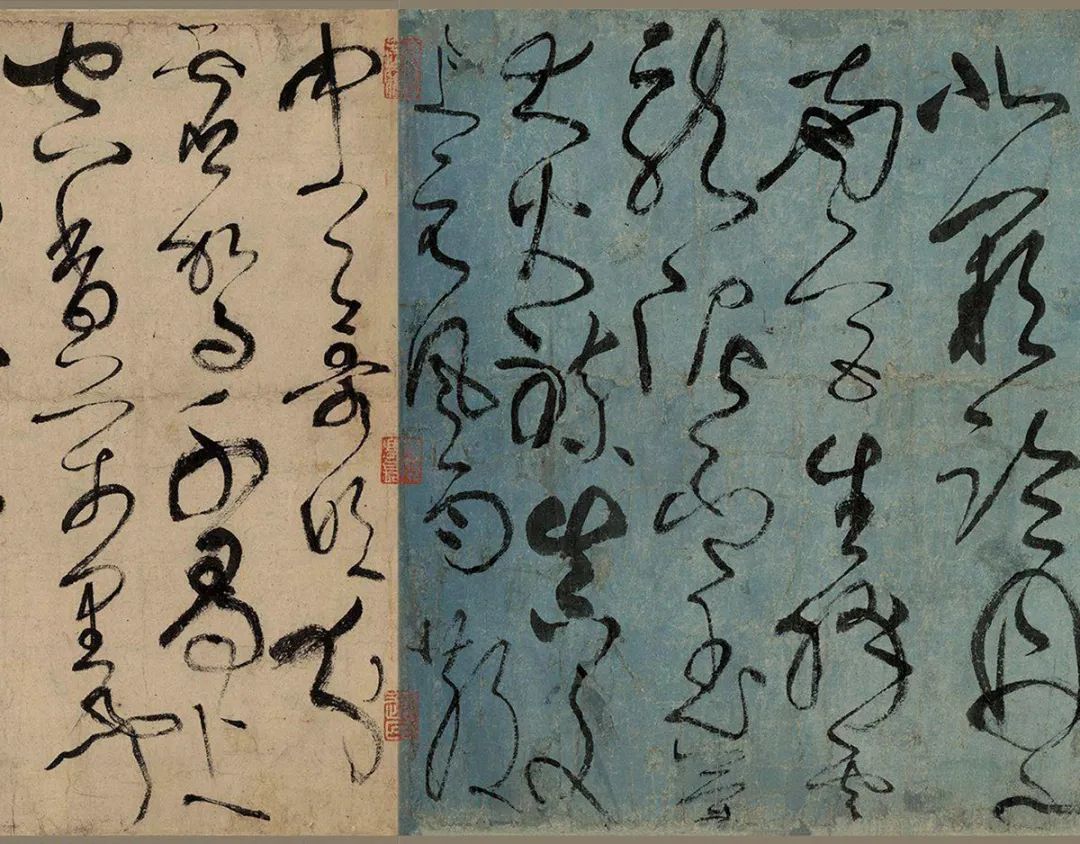 北闕臨丹水
南宮生絳雲
龍泥印玉簡
大火煉真文
上元風雨散
中天哥吹分
虛駕千尋上
空香萬里聞